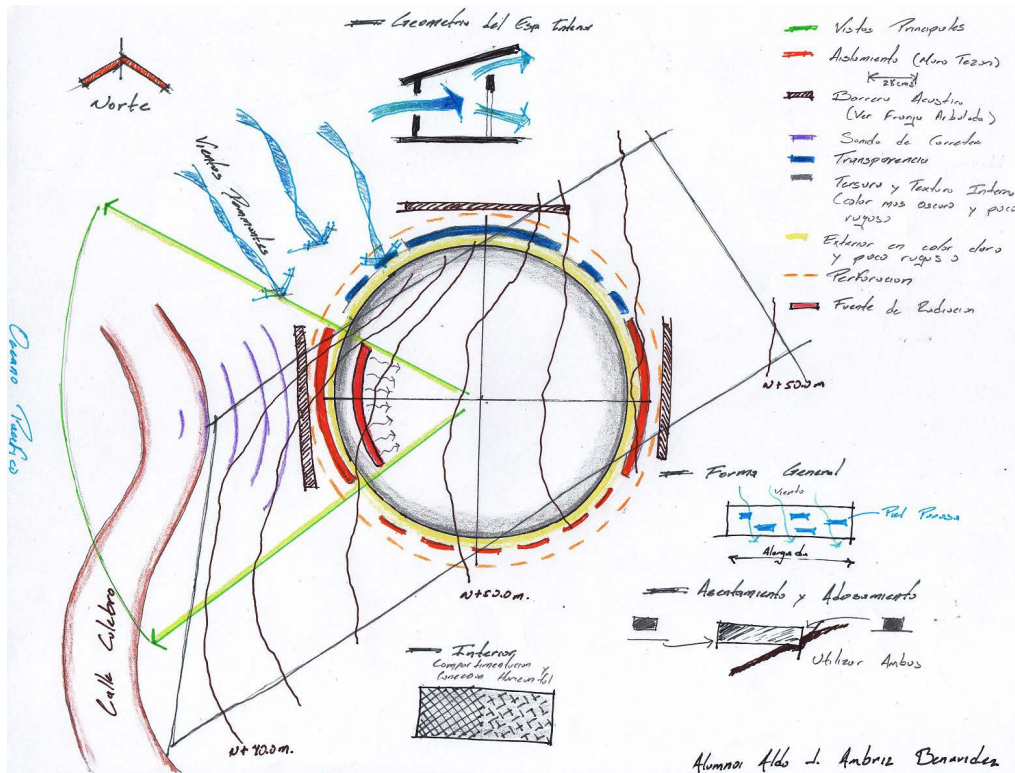 Geometria del Esp Interior
Norte
Vientos Dominantes
Vistas Principales
Aislamiento (Muro Tezon)
28cms
Barrera Acustica
(Ver Franja Arbolada)
Sonido de Carretera
Transparencia
Tersura y Textura Interna
(color mas oscuro y poco
rugoso)
Exterior en color claro
y poco rugoso
Perforacion
Fuente de Radiacion
Oceano Pacifico
N+50.0m
Forma General
Viento
Piel Porosa
Alargada
N+50.0m.
Asentamiento y Adosamiento
Utilizar Ambos
Calle Culebra
Interior
Compartimentacion y
Coneccion Horizontal
Alumno: Aldo J. Ambriz Benavidez